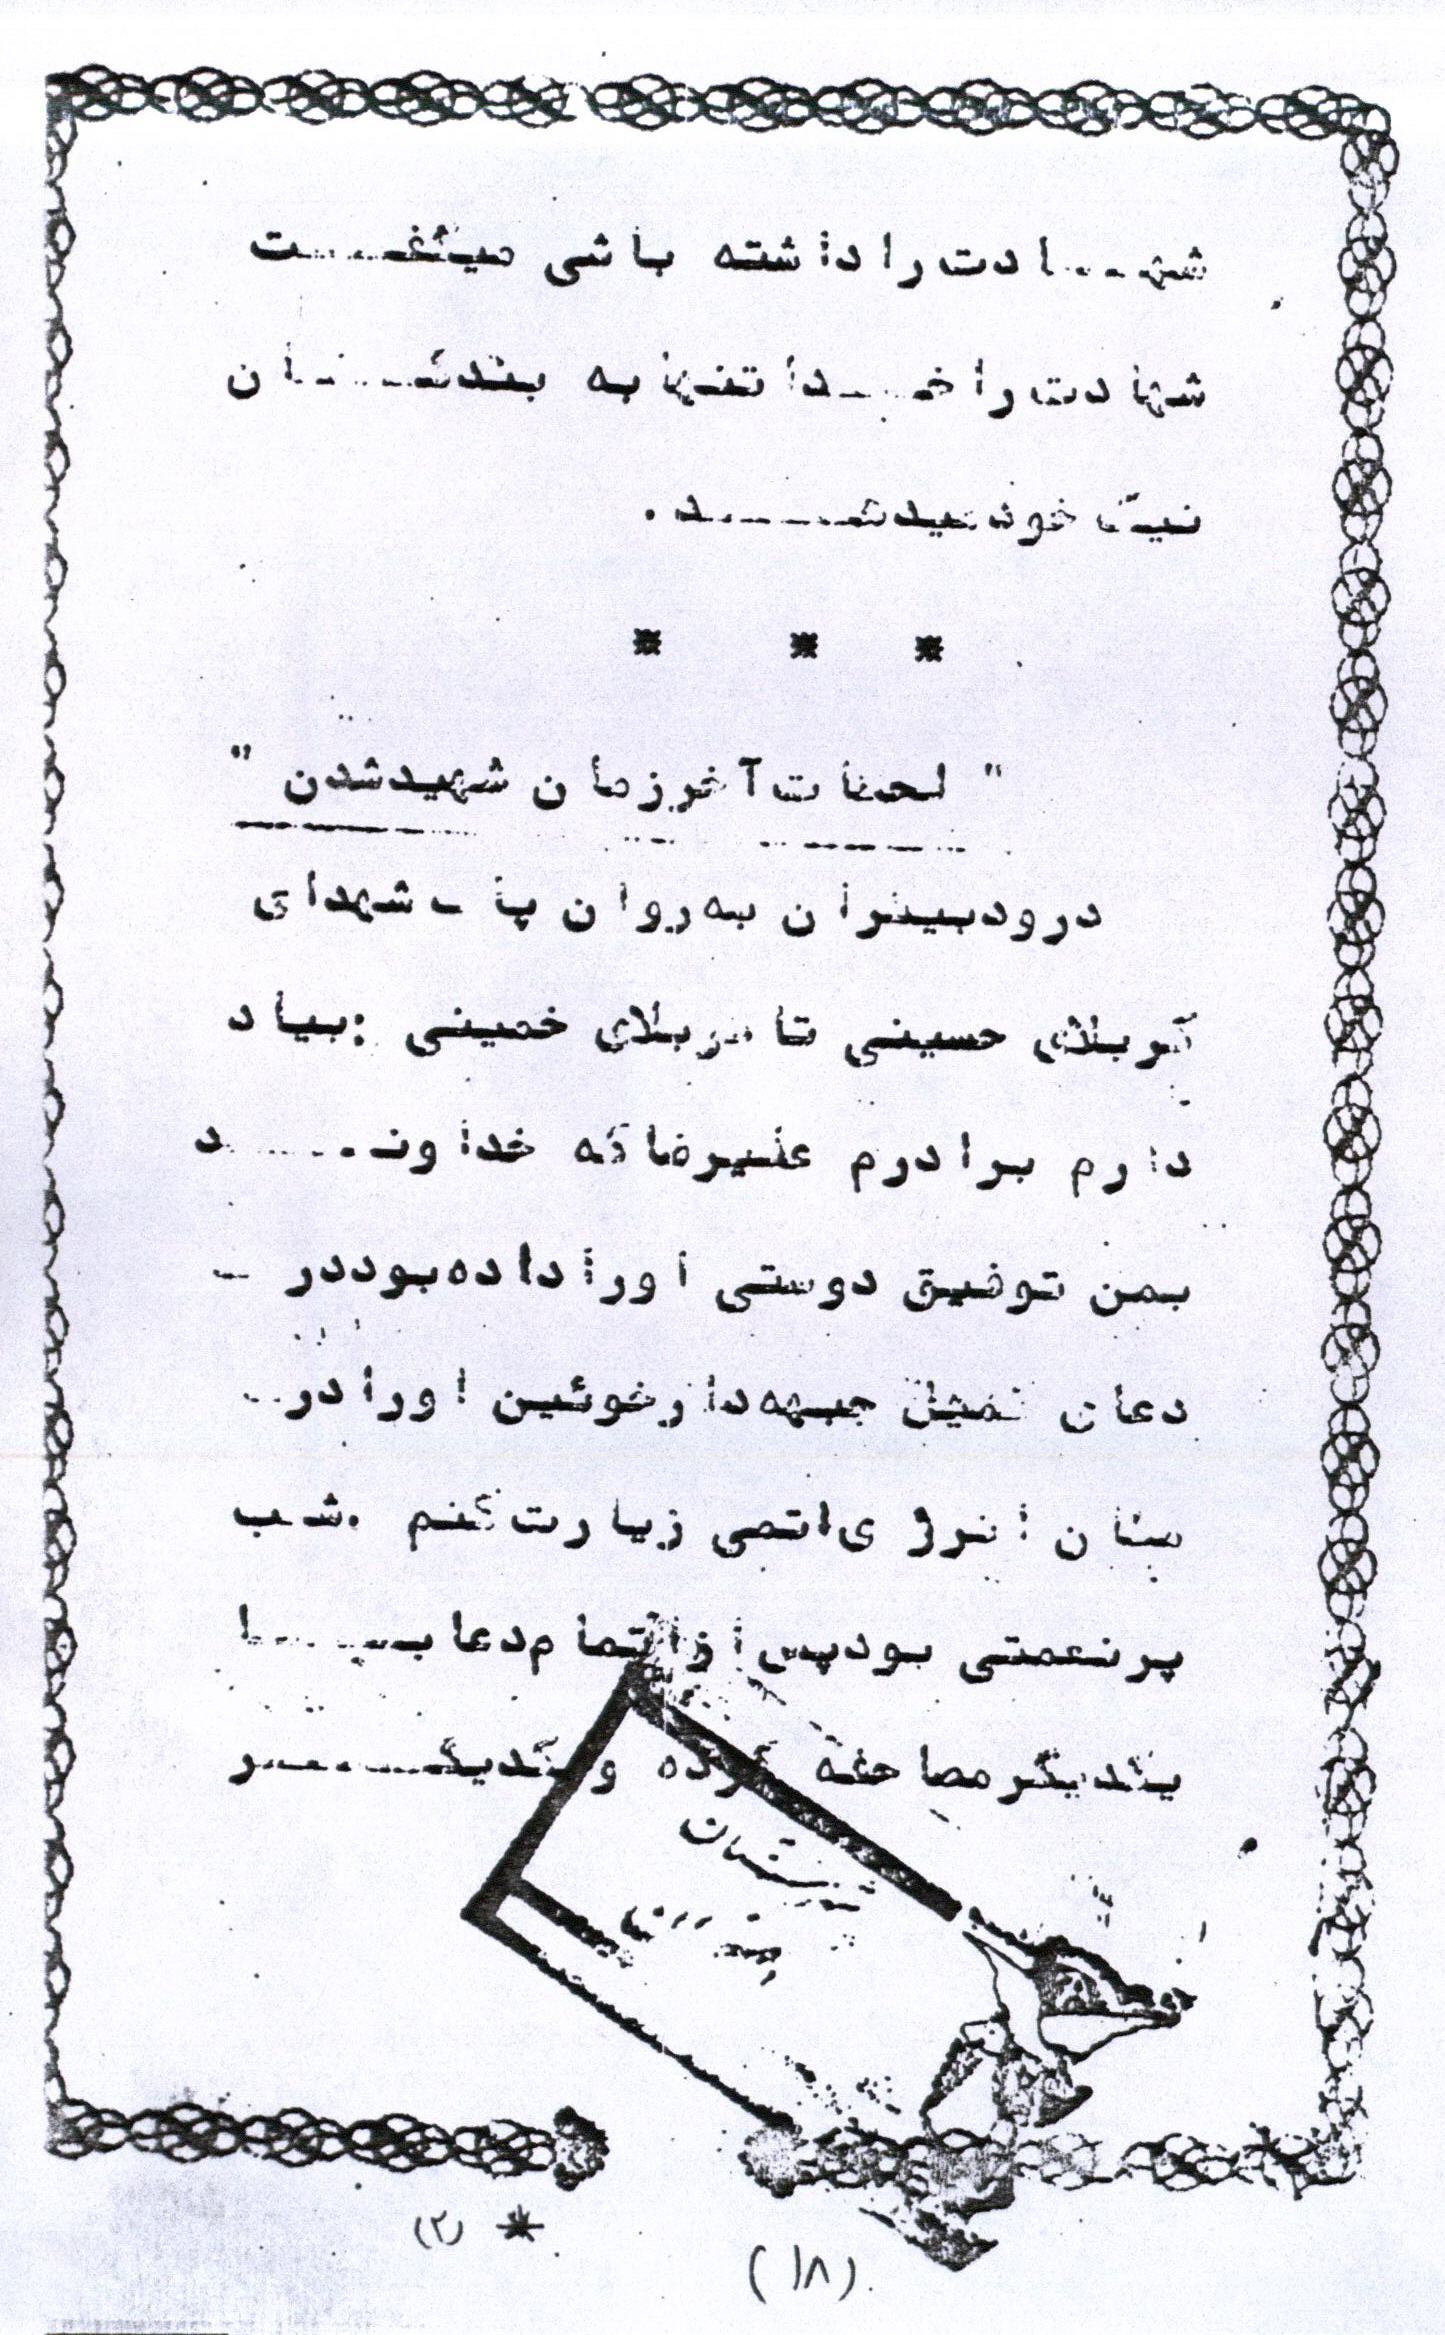 شهادت را داشته باشی میگفت
شهادت را خدا تنها به بندگان
نیک خود میدهد.
* * *
" لحظات آخر زمان شهید شدن "
درود بیکران به روان پاک شهدای
کربلای حسینی تا کربلای خمینی : بیاد
دارم برادرم علیرضا که خداوند
بمن توفیق دوستی او را داده بود در -
دعای کمیل جبهه دارخوئین او را در
مکان انرژی اتمی زیارت کنم . شب
پر نعمتی بود پس از اتمام دعا با
یکدیگر مصاحفه کرده و یکدیگر
* (۲)
(۱۸)